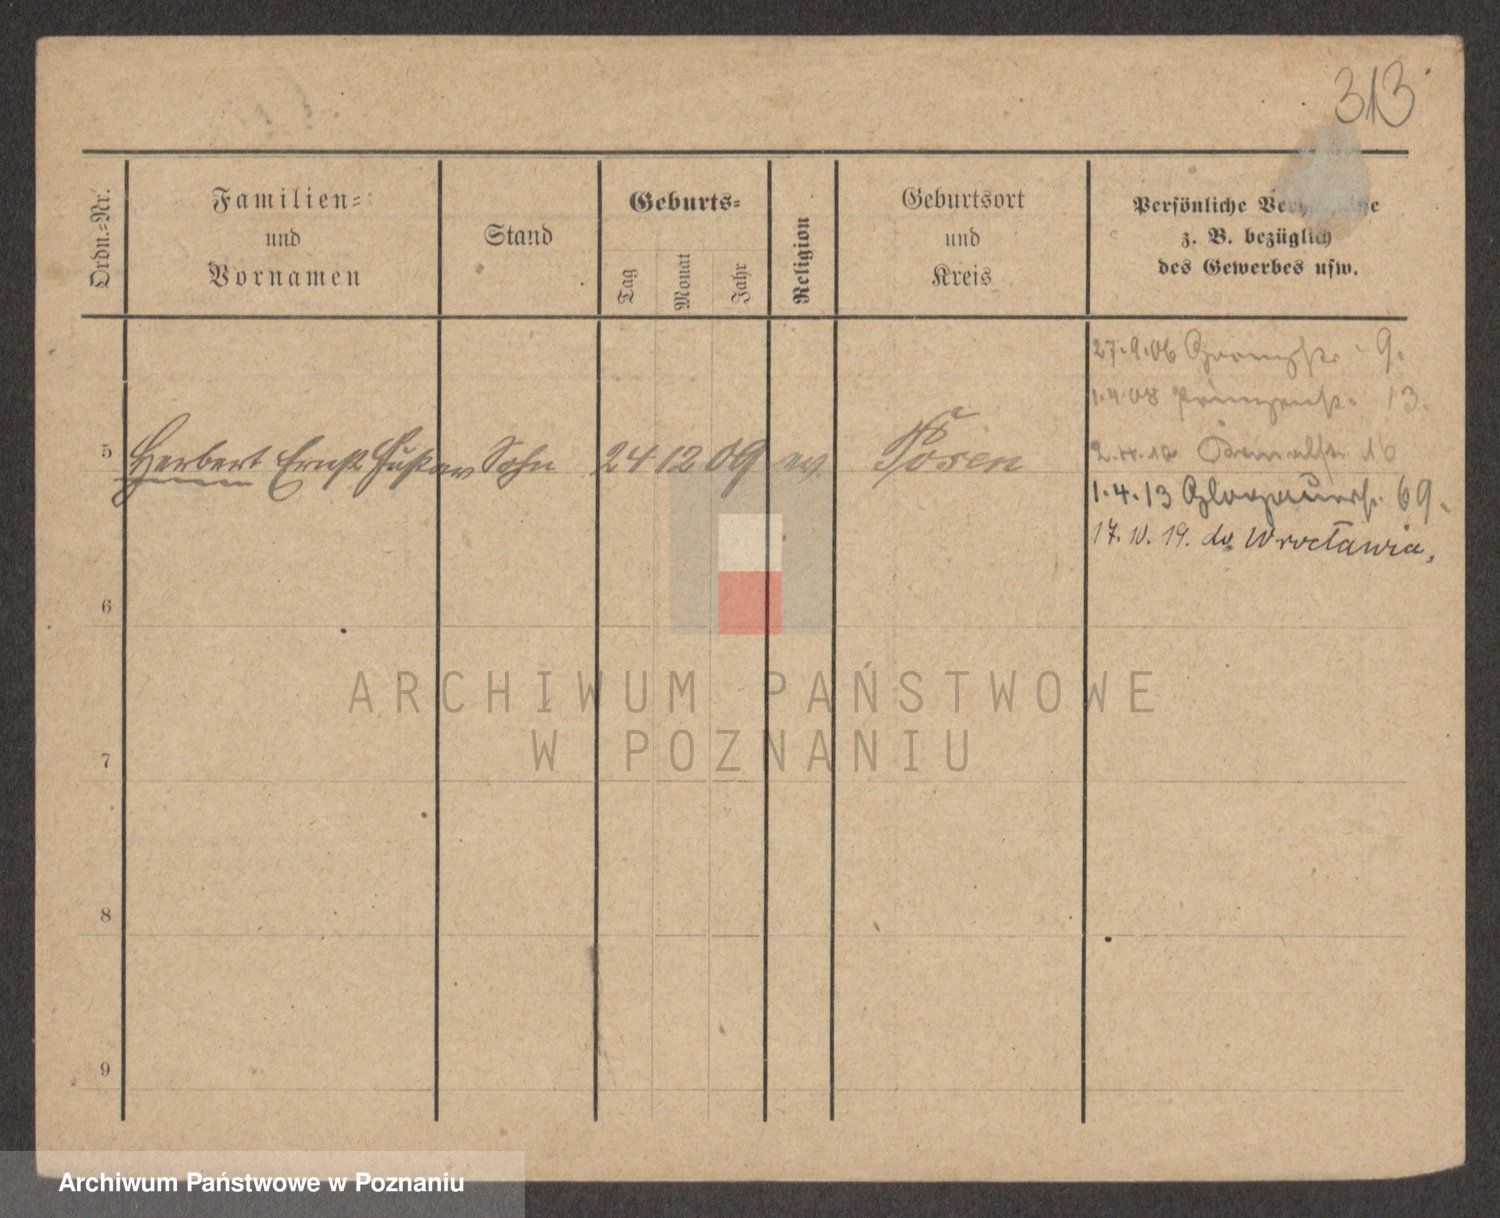 313
Ordn.-Nr.
Familien-
und
Vornamen
Stand
Geburts-
Tag
Monat
Jahr
Religion
Geburtsort
und
Kreis
Persönliche
z. B. bezüglich
des Gewerbes usw.
27.9.06 9.
1.4.08 Prinzenstr. 13.
5 Herbert Ernst Gustav Sohn 24 12 09 ev. Posen
16
1.4.13 Glogauerstr. 69.
17.10.19. do Wrocławia,
6
7
8
9
ARCHIWUM PAŃSTWOWE
W POZNANIU
Archiwum Państwowe w Poznaniu